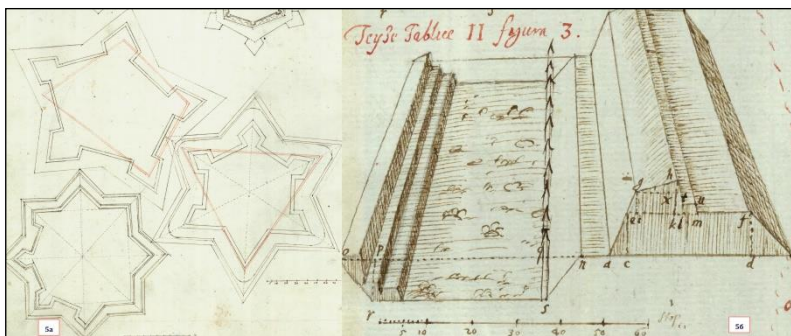 Teyże Tablice II figura 3.
g h
x t u
e i k l m f
o p n a c d
r s
5 10 20 30 40 50 60
5a 5б